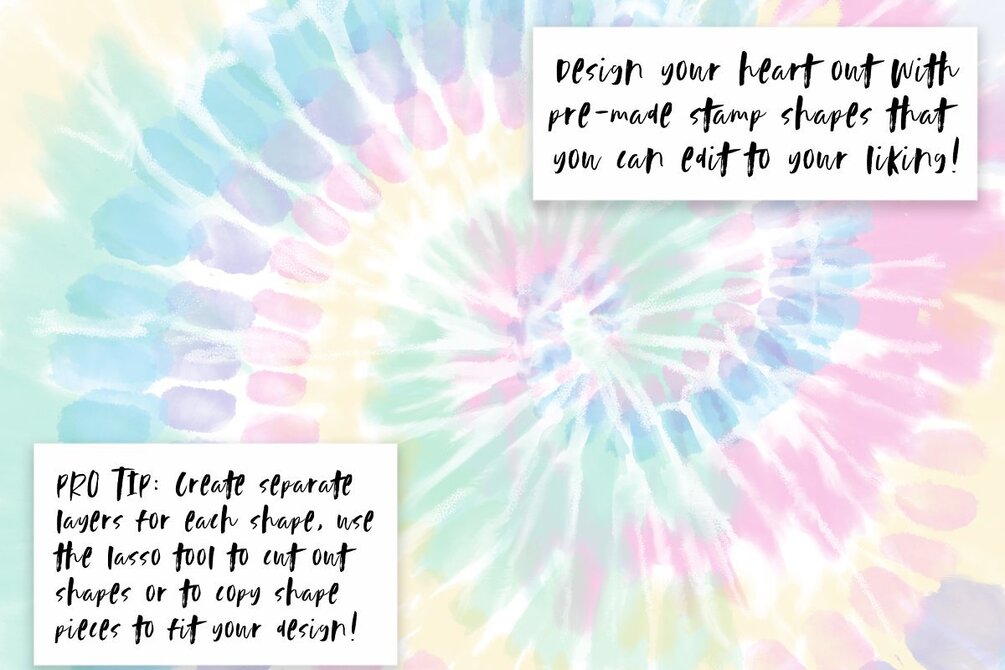 Design your heart out with
pre-made stamp shapes that
you can edit to your liking!
PRO TIP: Create separate
layers for each shape, use
the lasso tool to cut out
shapes or to copy shape
pieces to fit your design!